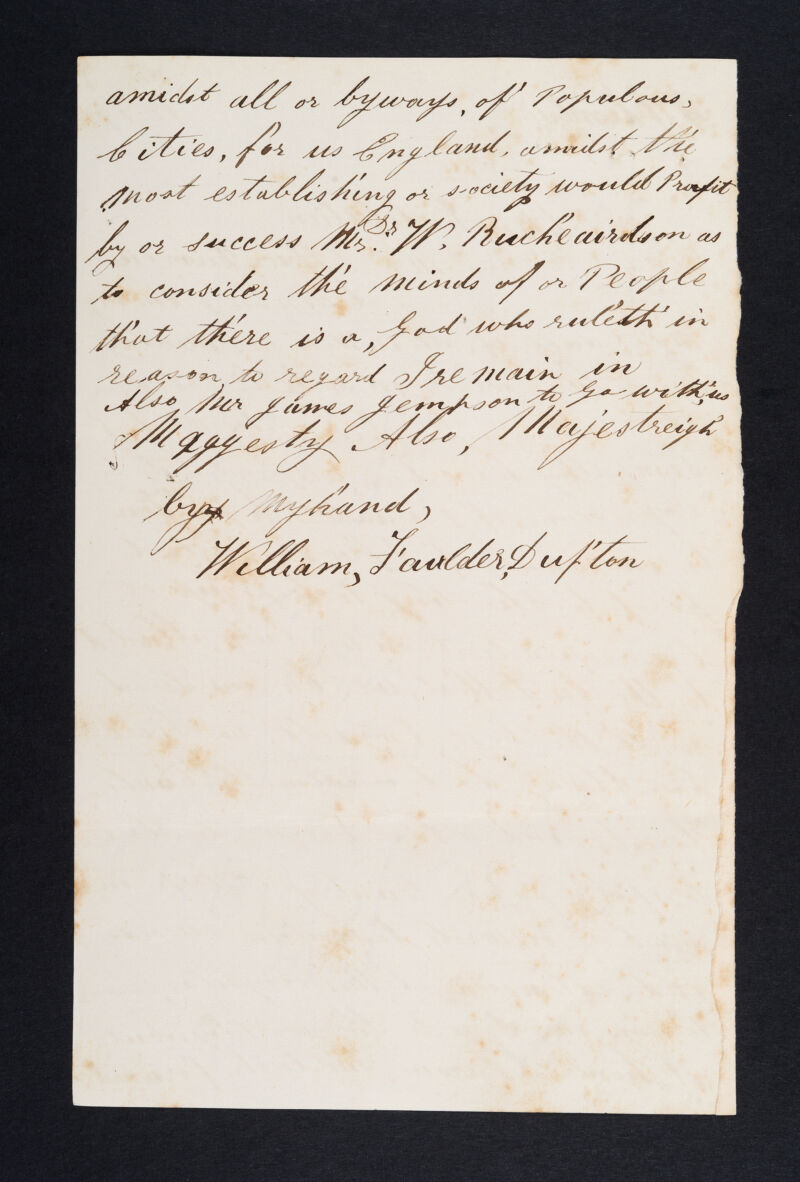 amidst all or byways, of Populous,
Cities, for us England, amidst the
most establishing or society would Profit
by or success Mr. Dr W. Rucheairdson as
to consider the minds of or People
that there is a, God who ruleth in
reason, to regard I remain in
Also Mr James Jempson to Go with us
Maggesty Also, Majestreigh
by my hand,
William, Faulder, Dufton